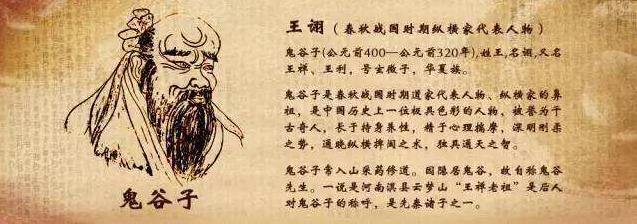 王诩（春秋战国时期纵横家代表人物）
鬼谷子(公元前400—公元前320年),姓王,名诩,又名
王禅、王利，号玄微子，华夏族。
鬼谷子是春秋战国时期道家代表人物、纵横家的鼻
祖，是中国历史上一位极具色彩的人物，被誉为千
古奇人，长于持身养性，精于心理揣摩，深明刚柔
之势，通晓纵横捭阖之术，独具通天之智。
鬼谷子常入山采药修道。因隐居鬼谷，故自称鬼谷
先生。一说是河南淇县云梦山“王禅老祖”是后人
对鬼谷子的称呼，是先秦诸子之一。
鬼谷子